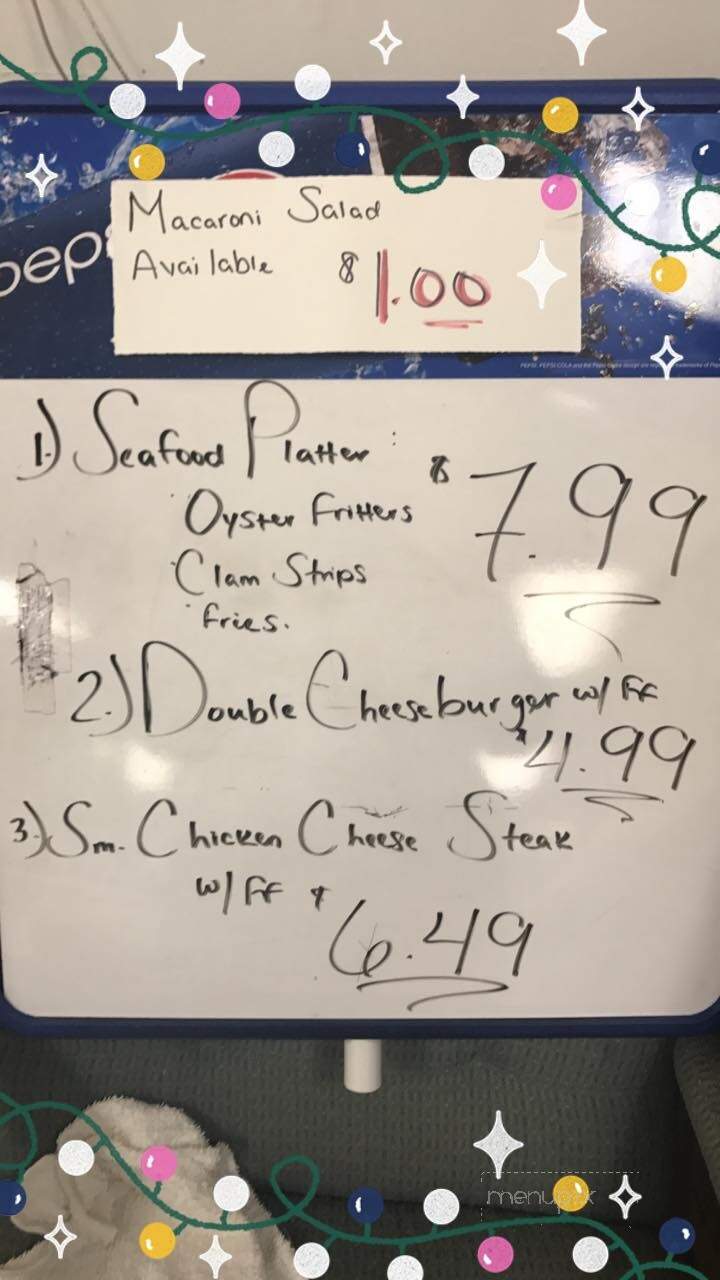 pepsi
Macaroni Salad
Available $1.00
1.) Seafood Platter: $7.99
Oyster Fritters
Clam Strips
fries.
2.) Double Cheeseburger w/ FF
$4.99
3.) Sm. Chicken Cheese Steak
w/ FF $6.49
menupix